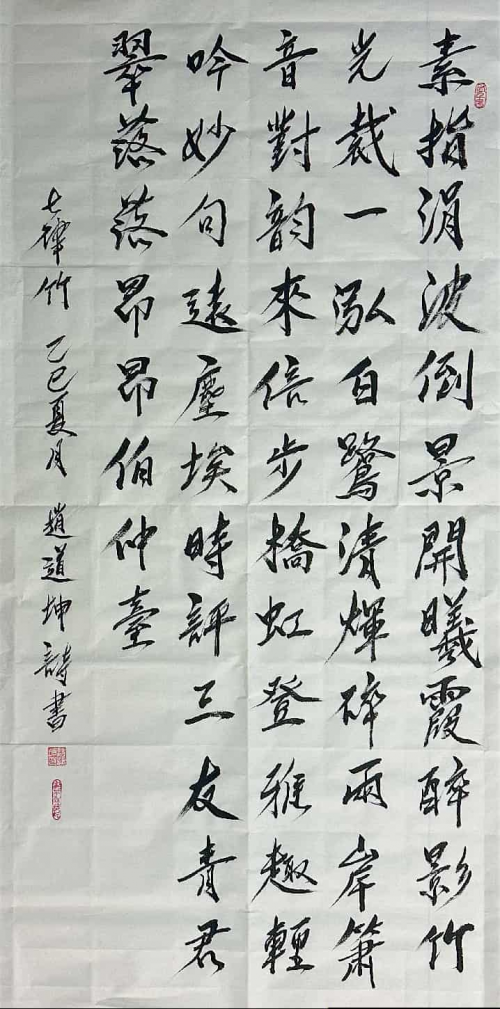 素指涓波倒景開曦霞醉影竹
光裁一泓白鷺清煇碎兩岸簫
音對韵來信步橋虹登雅趣輕
吟妙句遠塵埃時評三友青君
翠落落昂昂伯仲臺
七律竹 乙巳夏月 趙道坤詩書